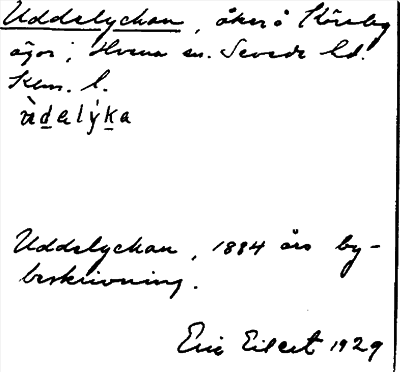 Uddelyckan, åker å Köreby
ägor i Hvena sn. Sevede hd.
Kalm. l.
ùdelýka
Uddelyckan, 1884 års by-
beskrivning.
Eric Eilert 1929